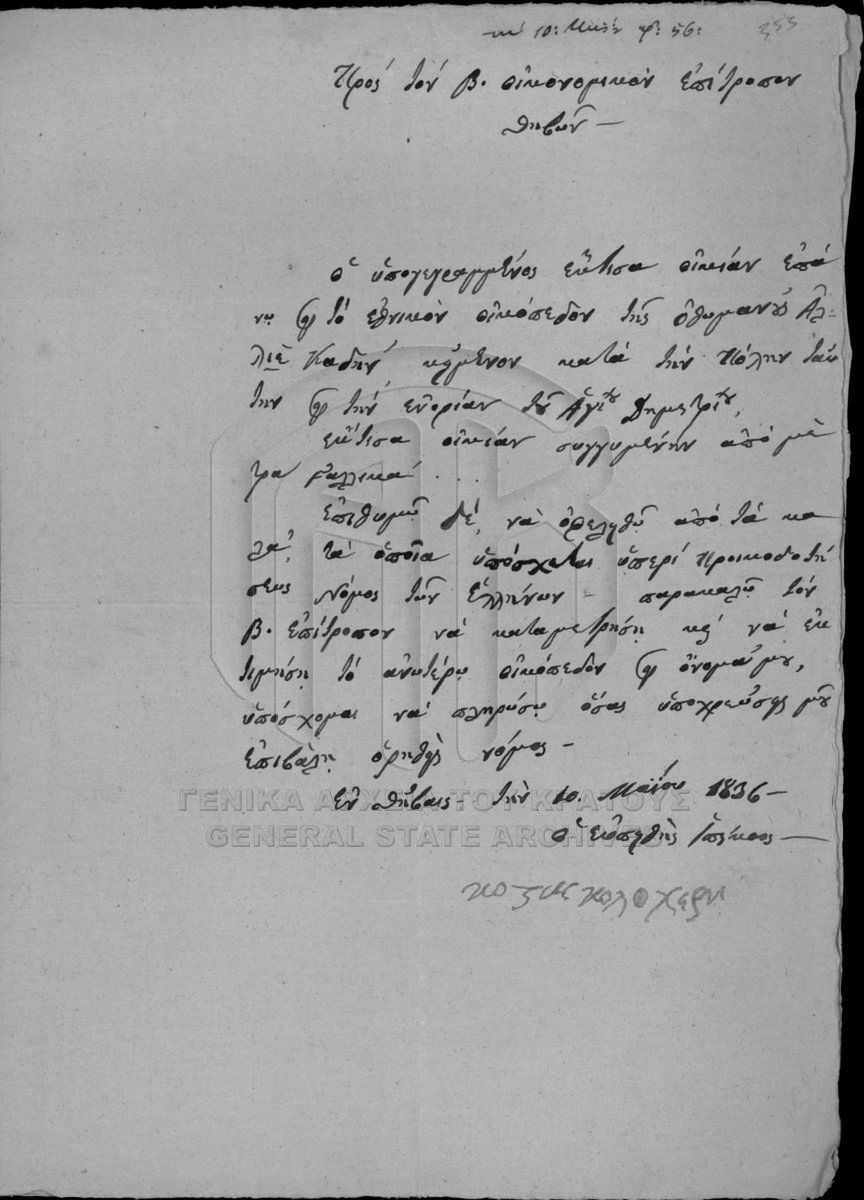 τη 10: Μαΐου 56: 353
Πρός τόν β. οἰκονομικὸν ἐπίτροπον
Θηβῶν —
ὁ ὑπογεγραμμένος ἔκτισα οἰκίαν ἐπά
νω εἰς τό ἐθνικὸν οἰκόπεδον τῆς ὀθωμανίδος Ἀλ-
λιὲ Καδῆν κείμενον κατά τήν Πόλην ταύ
την εἰς τήν ἐνορίαν τοῦ Ἁγίου Δημετρίου,
ἔκτισα οἰκίαν συγγυμένην ἀπό μέ
τρα Γαλλικά . . .
Ἐπιθυμῶ δέ, νὰ ὀφεληθῶ ἀπό τά κα
λά, τά ὁποῖα ὑπόσχεται ὑπερί προικοδοτή
σεως Νόμος τῶν Ἑλλήνων — παρακαλῶ τόν
β. ἐπίτροπον νά καταμετρήση καί νά ἐκ
τιμήση τό ἀνωτέρω οἰκόπεδον εἰς ὄνομά μου,
ὑπόσχομαι νά πληρώσω ὅσας ὑποχρεώσεις μοῦ
ἐπιβάλη ὁ ῥηθεὶς νόμος —
Ἐν Θήβαις — τὴν 10 Μαΐου 1836 —
ὁ εὐπειθὴς ὑπήκοος —
ΓΕΝΙΚΑ ΑΡΧΕΙΑ ΤΟΥ ΚΡΑΤΟΥΣ
GENERAL STATE ARCHIVES